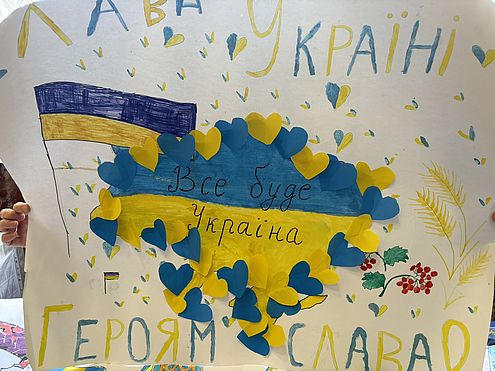 ЛАВА УКРАЇНІ
Все буде
Україна
ГЕРОЯМ СЛАВАО